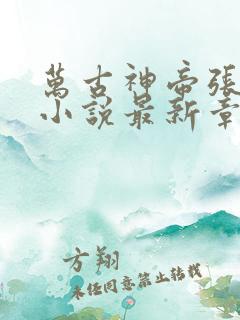 萬古神帝張
小說最新章
方翔
未經同意禁止轉載